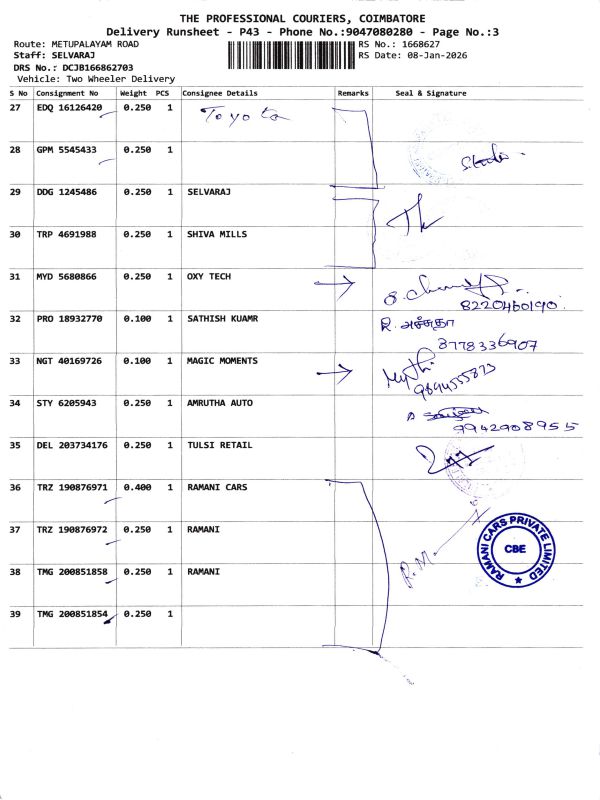 THE PROFESSIONAL COURIERS, COIMBATORE
Delivery Runsheet - P43 - Phone No.:9047080280 - Page No.:3
Route: METUPALAYAM ROAD RS No.: 1668627
Staff: SELVARAJ RS Date: 08-Jan-2026
DRS No.: DCJB166862703
Vehicle: Two Wheeler Delivery
S No Consignment No Weight PCS Consignee Details Remarks Seal & Signature
27 EDQ 16126420 0.250 1 Toyota
28 GPM 5545433 0.250 1
29 DDG 1245486 0.250 1 SELVARAJ
30 TRP 4691988 0.250 1 SHIVA MILLS
31 MYD 5680866 0.250 1 OXY TECH
8220460190
32 PRO 18932770 0.100 1 SATHISH KUAMR R. அச்சுதா
8778336907
33 NGT 40169726 0.100 1 MAGIC MOMENTS
9894555873
34 STY 6205943 0.250 1 AMRUTHA AUTO
9942908955
35 DEL 203734176 0.250 1 TULSI RETAIL
36 TRZ 190876971 0.400 1 RAMANI CARS
37 TRZ 190876972 0.250 1 RAMANI
RAMANI CARS PRIVATE LIMITED
CBE
R.M.
38 TMG 200851858 0.250 1 RAMANI
39 TMG 200851854 0.250 1